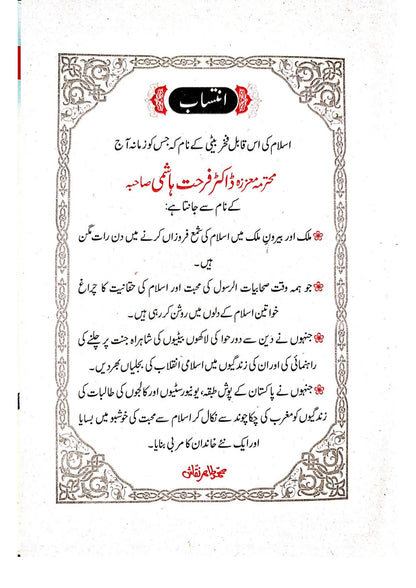 انتساب
اسلام کی اس قابل فخر بیٹی کے نام کہ جس کو زمانہ آج
محترمہ معززہ ڈاکٹر فرحت ہاشمی صاحبہ
کے نام سے جانتا ہے:
ملک اور بیرون ملک میں اسلام کی شمع فروزاں کرنے میں دن رات مگن
ہیں۔
جو ہمہ وقت صحابیات الرسول کی محبت اور اسلام کی حقانیت کا چراغ
خواتین اسلام کے دلوں میں روشن کر رہی ہیں۔
جنہوں نے دین سے دور حوا کی لاکھوں بیٹیوں کی شاہراہ جنت پر چلنے کی
راہنمائی کی اور ان کی زندگیوں میں اسلامی انقلاب کی بجلیاں بھر دیں۔
جنہوں نے پاکستان کے پوش طبقہ، یونیورسٹیوں اور کالجوں کی طالبات کی
زندگیوں کو مغرب کی چکا چوند سے نکال کر اسلام سے محبت کی خوشبو میں بسایا
اور ایک نئے خاندان کا مربی بنایا۔
محمد طاہر نقاش